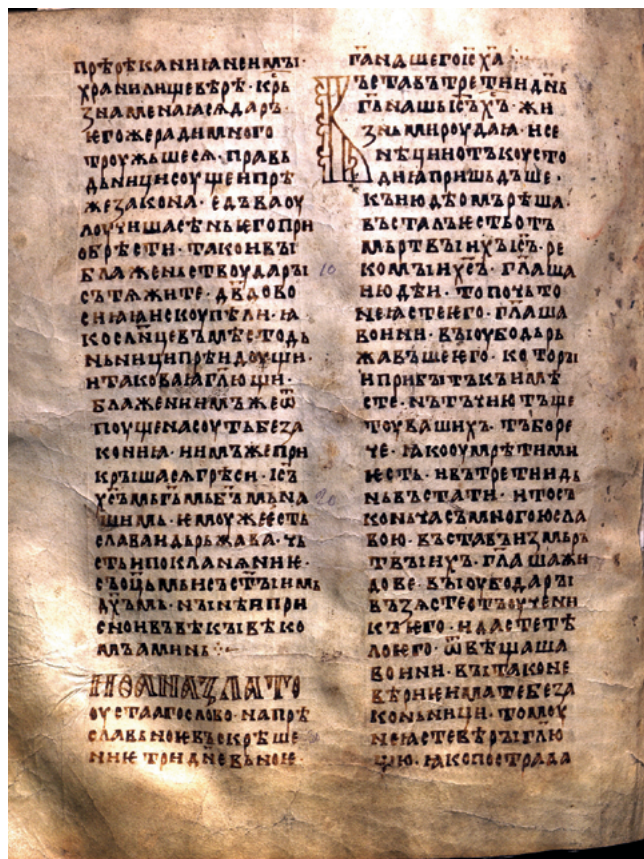 прѣрѣканиꙗ неимꙑ·
хранилище вѣрѣ· крь
знаменаꙗсѧ даръ·
ѥгоже ради много
троужьшесѧ· правь
дьници соущеи прѣ
же закона· едъва оу
лоучиша сѣнь ѥго при
обрѣсти· тако и вꙑ
блаженьство ударꙑ
сътѧжите· дв҃до во
сниꙗние коупѣли· ꙗ
ко слн҃це въмѣстодь
ньници приидоущи·
и таковаꙗ гл҃ющи·
блажении имъже ѿ
поущена соуть беза
кониꙗ· и имъже при
крꙑша сѧ грѣси· ис҃ъ
хс҃ъмь гм҃ь бм҃ь на
шимь· ѥмоу же ѥсть
слава и дьржава· чь
сть и покланѧниѥ·
съ оц҃ьмь и съ ст҃ꙑимь
дх҃ъмь· нꙑнѣ и при
сно и въ вѣкꙑ вѣко
мъ аминь
иѳана златѡ
оустааго слово· на прѣ
славьноѥ въскрѣше
ниѥ тридн҃евьноѥ·
га҃ нашего ис҃ ха҃
Въставъ третии дн҃ь
гь҃ нашь ис҃ъ хъ҃· жи
знь мироу даꙗ· и се
нѣции отъ коусто
диꙗ пришьдъше·
къ июдѣомъ рѣша·
въсталъ ѥсть отъ
мьртвꙑихъ ис҃ъ· ре
комꙑи хс҃ъ· гл҃аша
июдѣи· то почьто
не ꙗсте ѥго· гл҃аша
воини· вꙑ оубо дьрь
жавъше ѥго· которꙑ
и прибꙑтъкъ имѣ
сте· нъ тъчию тъще
тоу вашихъ· тъ бо ре
че· ꙗко оумрѣти ми
ѥсть· и въ третии дь
нь въстати· и то съ
коньча съ многою сла
вою· въставъ из мьрь
твꙑихъ· гл҃аша жи
дове· вꙑ оубо дарꙑ
възѧсте отъ оучени
къ ѥго· и дасте тѣ
ло ѥго· ѿвѣщаша
воини· вꙑ тако не
вѣрни имате беза
коньници· томоу
не ꙗсте вѣрꙑ гл҃ю
щю· ꙗко пострада